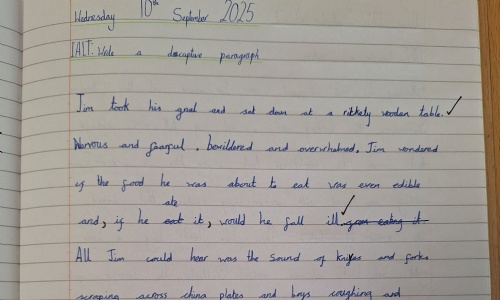 Wednesday 10th September 2025
IALT: Write a descriptive paragraph
Jim took his gruel and sat down at a rickety wooden table.
Nervous and fearful, bewildered and overwhelmed, Jim wondered
if the food he was about to eat was even edible
ate
and, if he eat it, would he fall ill from eating it
All Jim could hear was the sound of knifes and forks
scraping across china plates and boys coughing and